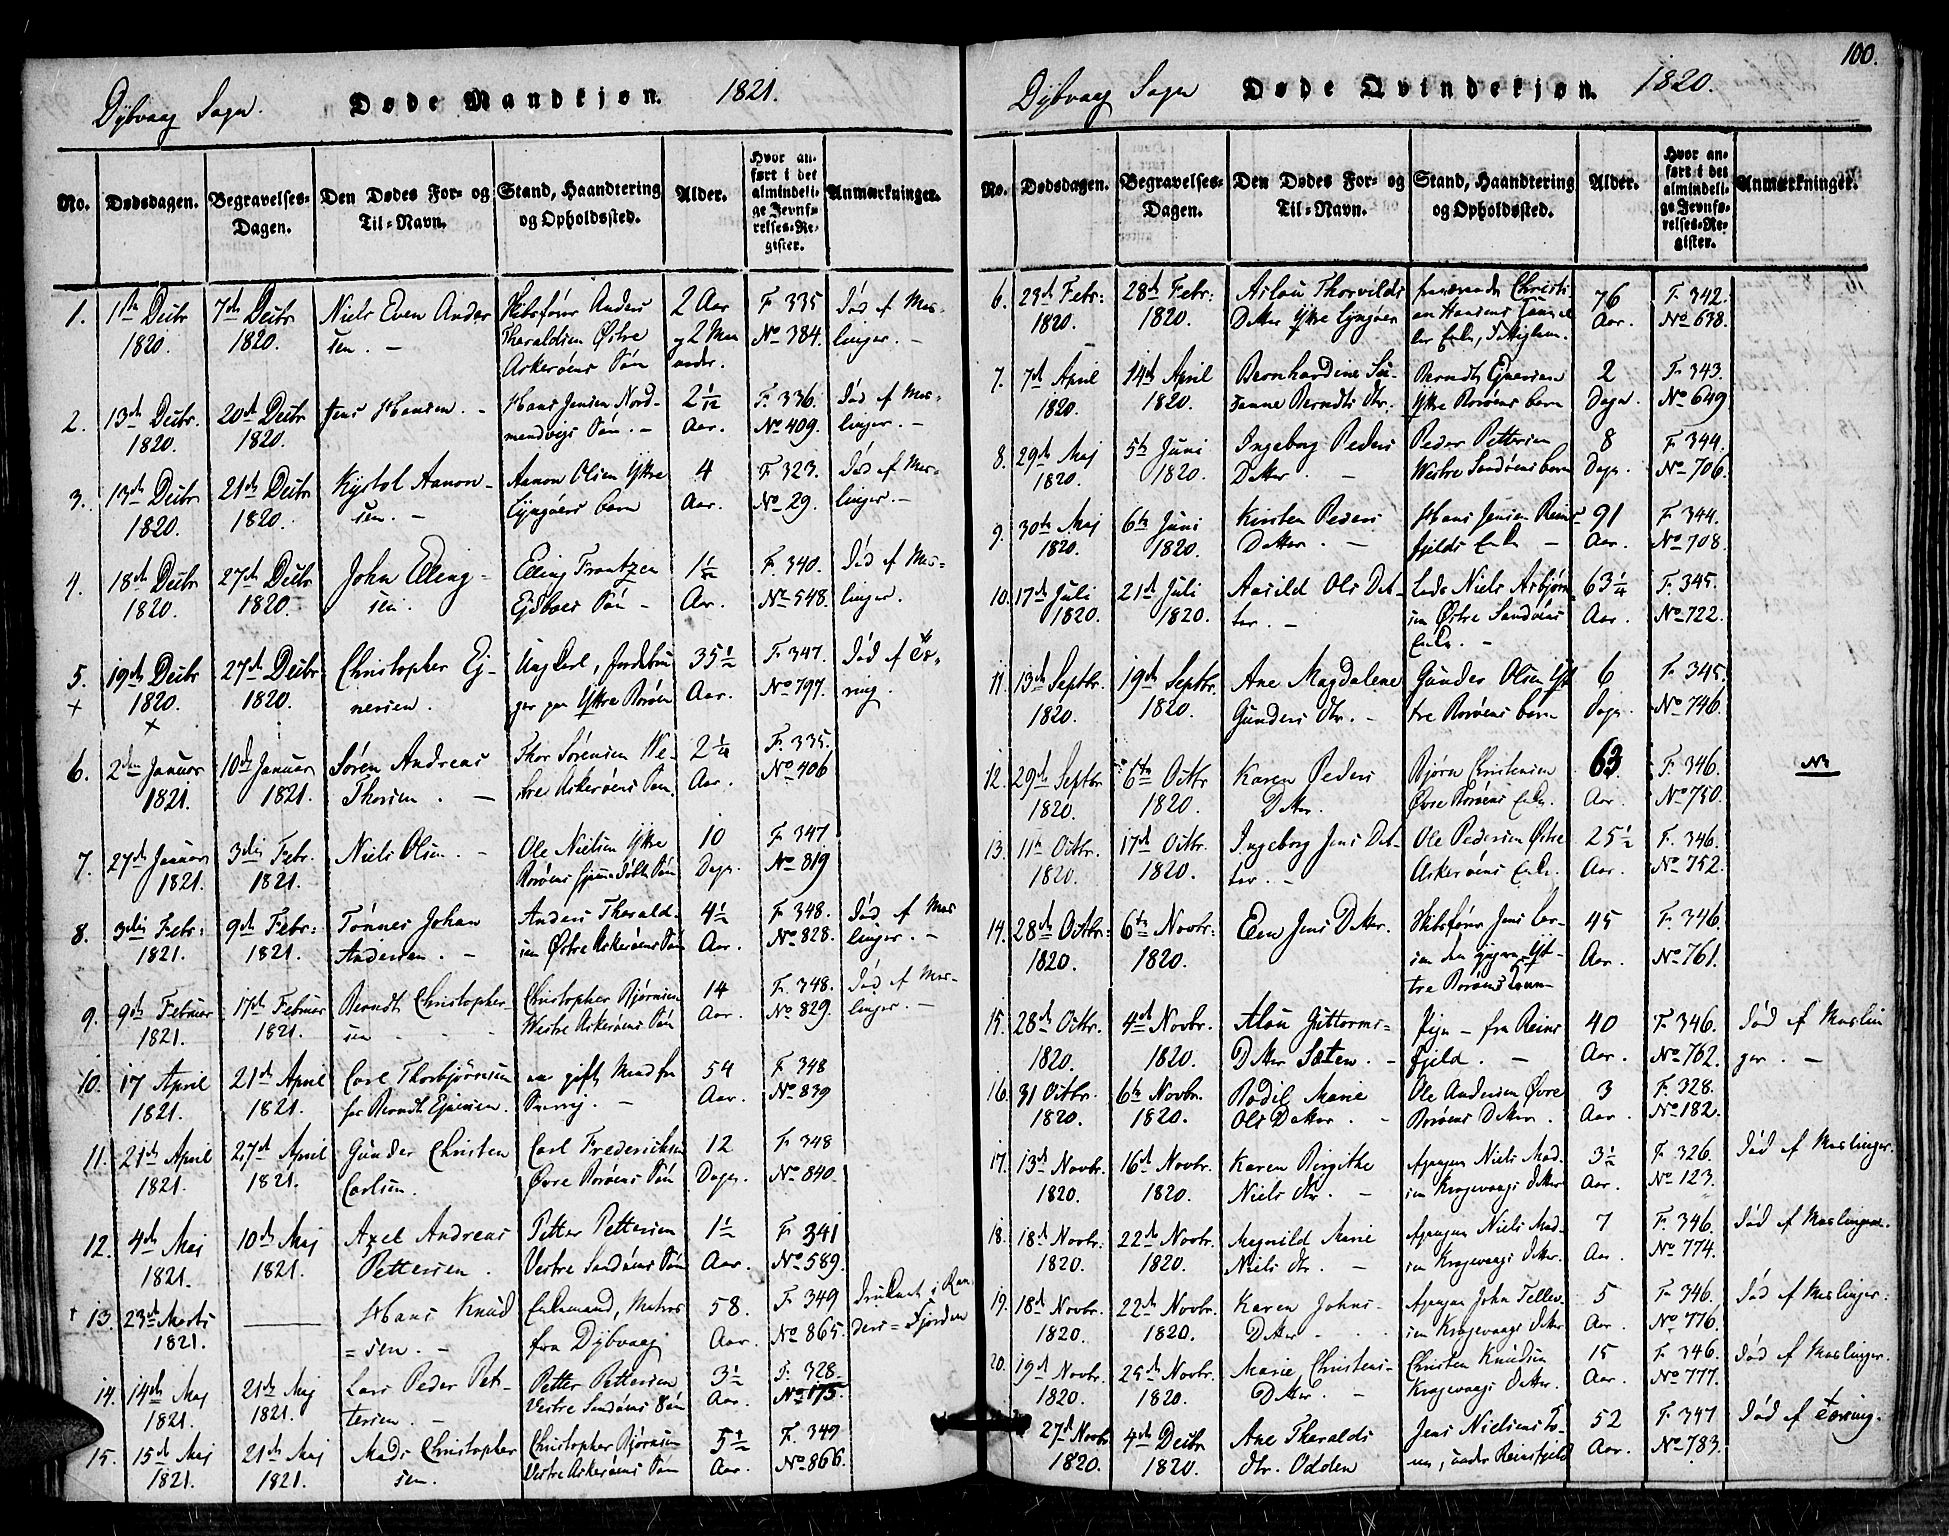 100.
Dybvaag Sogn. Døde Mandkjøn. 1821.
No. Dødsdagen. Begravelses-Dagen. Den Dødes For- og Til-Navn. Stand, Haandtering og Opholdssted. Alder. Hvor anført i det almindelige Jevnførelses-Register. Anmærkninger.
1. 1ste Decbr 7de Decbr Niels Even Ander Anders 2 Aar F. 335 Død af Mes-
1820. 1820. sen. – Tharaldsen Østre og 2 Maa No 384. linger. –
Askerøens Søn neder.
2. 13de Decbr. 20de Decbr Jens Hansen. – Hans Jensen Nord- 2 1/12 F. 336. Død af Mes-
1820. 1820. mandvigs Søn. – Aar. No 409. linger. –
3. 13de Decbr 21de Decbr Kystol Aanon- Aanon Olsen Ytre 4 F. 323. Død af Mes-
1820. 1820. sen. – Lyngøers barn Aar. No 29. linger. –
4. 18de Decbr 27de Decbr John Elling- Elling Frantzen F. 340. Død af Mes-
1820. 1820. sen. Søn – Aar. No 548. linger.
5. 19de Decbr 27de Decbr Christopher Ej- Ung Carl, 35 1/2 F. 347. Død af Tæ-
+ 1820. 1820. nersen. paa Ytre Borøen Aar. No 797. ring.
+
6. 2den Januar 10de Januar Søren Andreas Thor Sørensen Ve- F. 335.
1821. 1821. Thorsen. – stre Askerøens Søn. Aar. No 406
7. 27de Januar 3die Febr. Niels Olsen. – Ole Nielsen Ytre 10 F. 347.
1821. 1821. Borøens Søn Dage. No 819
8. 3die Febr: 9de Febr: Tønnes Johan Anders Tharald- 4 1/2 F. 348. Død af Mes
1821. 1821. Andersen. – sen Østre Askerøens Søn Aar. No 828. linger. –
9. 9de Februar 17de Februar Berndt Christopher- Christopher Bjørnsen 14 F. 348. Død af Mes-
1821. 1821. sen Vestre Askerøens Søn Aar. No 829. linger. –
10. 17 April 21de April Carl Thorbjørnsen en gift Mand fra 54 F. 348
1821. 1821. Berndt Ejnersen. – Aar. No 839
11. 21de April 27de April Gunder Christen Carl Fredericksen 12 F. 348
1821. 1821. Carlsen. Øvre Borøens Søn Dage. No 840.
12. 4de Maj 10de Maj Axel Andreas Petter Pettersen 1 1/2 F. 341
1821. 1821. Pettersen. Vestre Sandøens Søn Aar. No 589.
+ 13. 23de Marts —— Hans Knud Enkemand, Matros 58. F. 349 Druknet i Ran
1821. =sen. – fra Dybvaag Aar. No 865. ders=Fjorden
14. 14de Maj 21de Maj Lars Peder Pet- Petter Pettersen 3 1/2 F. 328.
1821. 1821. tersen. – Vestre Sandøens Søn Aar. No 175.
15. 15de Maj 21de Maj Mads Christopher Christopher Bjørnsen 5 1/2 F. 349
1821. 1821. sen. Vestre Askerøens Søn Aar. No 866.
Dybvaag Sogn Døde Qvindekjøn. 1820.
No. Dødsdagen. Begravelses-Dagen. Den Dødes For- og Til-Navn. Stand, Haandtering og Opholdssted. Alder. Hvor anført i det almindelige Jevnførelses-Register. Anmærkninger.
6. 23de Febr: 28de Febr: Aslou Thorvilds Christi- 76 F. 342.
1820. 1820. Datter Ytre Lyngøer an Hansens Aar. No 638.
7. 7de April 14de April Bernhardine Su- Berndt Ejnersen 2 F. 343.
1820. 1820. sanne Berndts Dtr. Ytre Borøens barn Dage. No 649
8. 29de Maj 5te Juni Ingeborg Peders Peder Pettersen 8 F. 344.
1820. 1820. Datter. – Vestre Sandøens barn Dage. No 706.
9. 30te Maj 6te Juni Kirsten Peders Hans Jensen Reins- 91 F. 344.
1820. 1820. Datter. – fjelds Enke – Aar. No 708.
10. 17de Juli 21de Juli Aasild Ols Dat- Lods Niels Asbjørn- 63 1/4 F. 345.
1820. 1820. ter. – sen Østre Sandøens Aar. No 722.
Enke. –
11. 13de Septbr. 19de Septbr. Ane Magdalene Gunder Olsen Yt 6 F. 345.
1820. 1820. Gunders Dtr. – tre Borøens barn Dage. No 746.
12. 29de Septbr 6te Octbr Karen Peders Bjørn Christensen 63 F. 346. NB
1820. 1820. Datter. Øvre Borøens Enke. Aar. No 750.
13. 11te Octbr. 17de Octbr. Ingeborg Jens Dat- Ole Pedersen Østre 25 1/2 F. 346.
1820. 1820. ter. – Askerøens Enke. Aar. No 752.
14. 28de Octbr: 6te Novbr: Elen Jens Datter. Jens Lar- 45 F. 346
1820. 1820. sen den yngre Yt- Aar. No 761.
tre Borøens
15. 28de Octbr. 4de Novbr. Alou Guttorms- Pige – fra Reins 40 F. 346. Død af Meslin
1820. 1820. Datter Sæten. – fjeld. – Aar. No 762. ger. –
16. 31 Octbr. 6te Novbr. Bodil Marie Ole Andersen Øvre 3 F. 328.
1820. 1820. Ols Datter. – Borøens Datter. Aar. No 182.
17. 13de Novbr. 16de Novbr. Karen Birgithe Niels Mad- 3 1/2 F. 326. Død af Meslinger.
1820. 1820. Niels Dtr. – sen Kragevaags Datter Aar. No 123.
18. 18de Novbr. 22de Novbr. Magnild Marie Niels Mad- 7 F. 346. Død af Meslingerne.
1820. 1820. Niels Dtr. – sen Kragevaags Datter. Aar. No 774.
19. 18de Novbr. 22de Novbr. Karen Johns- John Tellev- 5 F. 346. Død af Meslinger.
1820. 1820. Datter. – sen Kragevaags Datter Aar. No 776.
20. 19de Novbr. 25de Novbr. Marie Christens- Christen Knudsen 15 F. 346. Død af Meslinger.
1820. 1820. Datter. – Kragevaags Datter. Aar. No 777.
27de Novbr 4de Decbr Ane Tharalds Jens Nielsens 52 F. 347 Død af Tæring.
1820. 1820. Dtr. Odden under Reinsfjeld Aar. No 783.